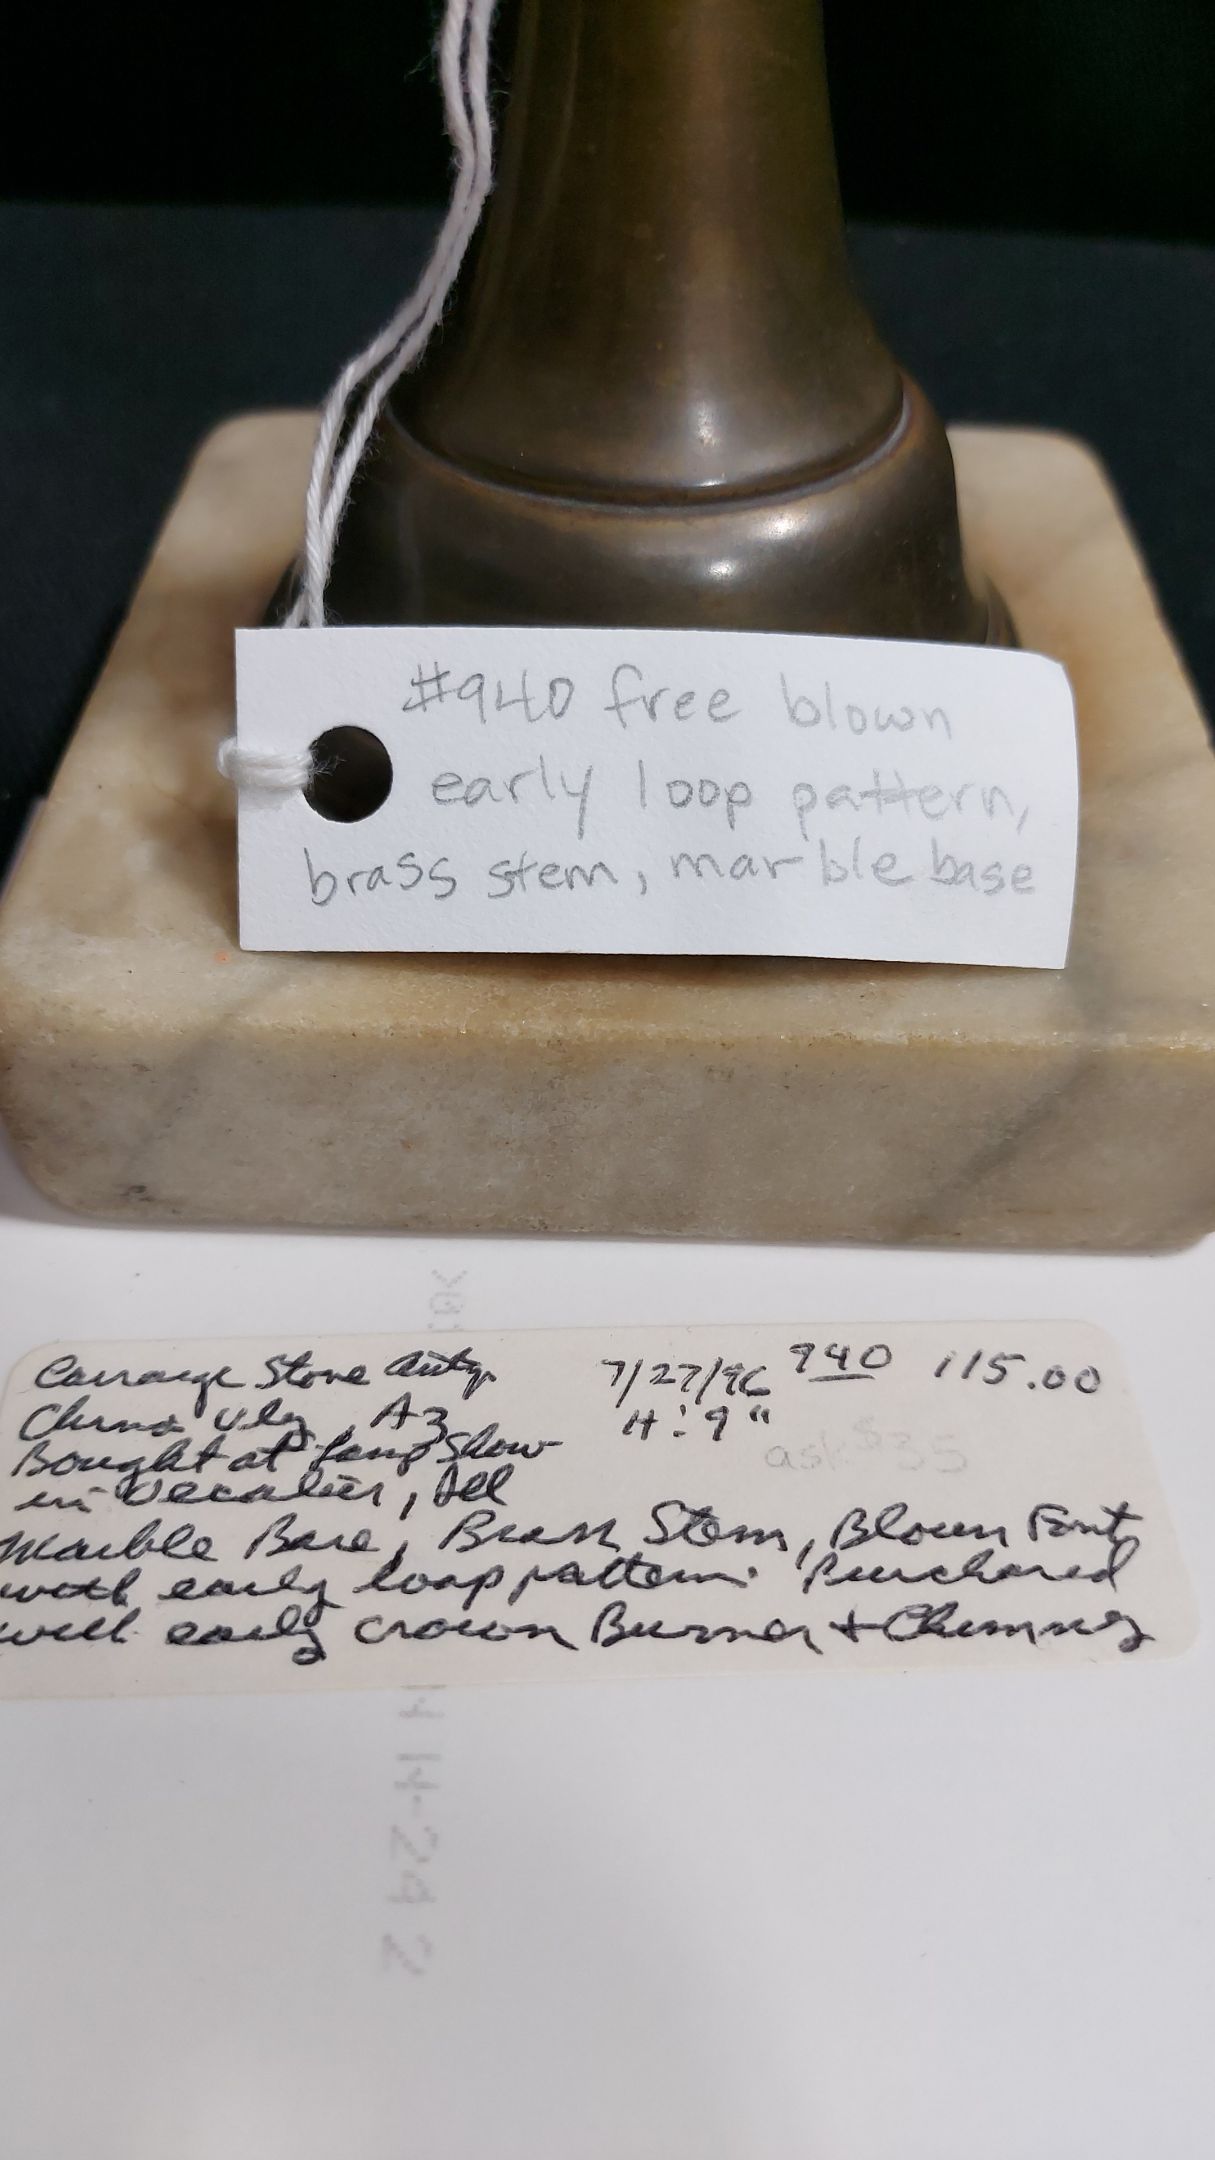 #940 free blown
early loop pattern,
brass stem, marble base
Carraige Stone Antq. 7/27/96 940 115.00
China Vly, AZ H: 9"
Bought at Lamp Show ask $35
in Decatur, Ill
Marble Base, Brass Stem, Blown Font
with early loop pattern. Purchased
with early crown Burner + Chimney